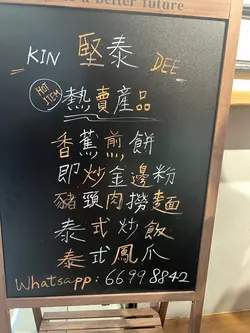 a better future
KIN 堅泰 DEE
HOT ITEM
熱賣產品
香蕉煎餅
即炒金邊粉
豬頸肉撈麵
泰式炒飯
泰式鳳爪
Whatsapp : 66998842